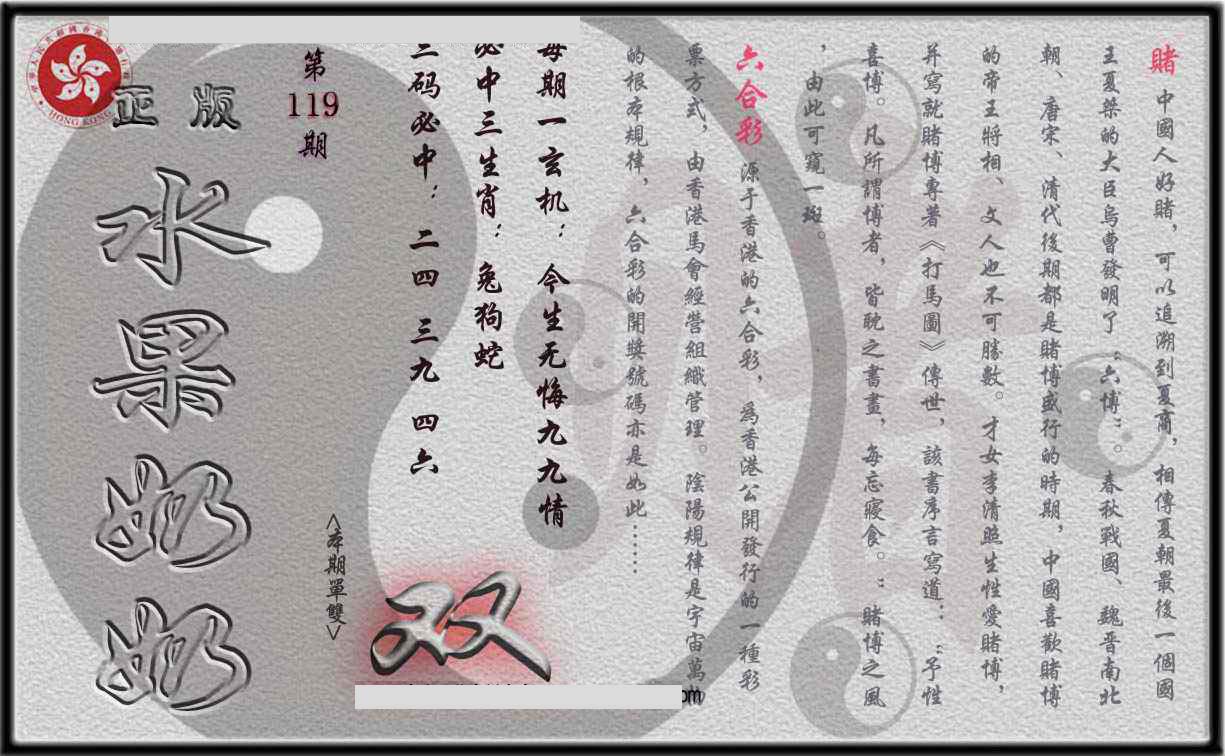 賭 中國人好賭，可以追溯到夏商，相傳夏朝最後一個國
王夏桀的大臣烏曹發明了“六博”。春秋戰國、魏晋南北
朝、唐宋、清代後期都是賭博盛行的時期，中國喜歡賭博
的帝王將相、文人也不可勝數。才女李清照生性愛賭博，
并寫就賭博專著《打馬圖》傳世，該書序言寫道：“予性
喜博。凡所謂博者，皆耽之書畫，每忘寢食。”賭博之風
，由此可窺一斑。
六合彩 源于香港的六合彩，為香港公開發行的一種彩
票方式，由香港馬會經營組織管理。陰陽規律是宇宙萬物
的根本規律，六合彩的開獎號碼亦是如此……
每期一玄机：今生无悔九九情
必中三生肖：兔狗蛇
三码必中：二四 三九 四六
<本期單雙>
双
第
119
期
正版
水果奶奶
HONG KONG
om